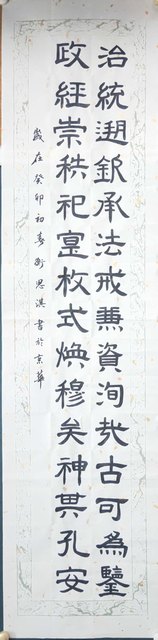 治統遡欽承法戒兼資洵哉古可為鑒
政經崇秩祀實枚式煥穆矣神其孔安
歲在癸卯初春衛思淇書於京華